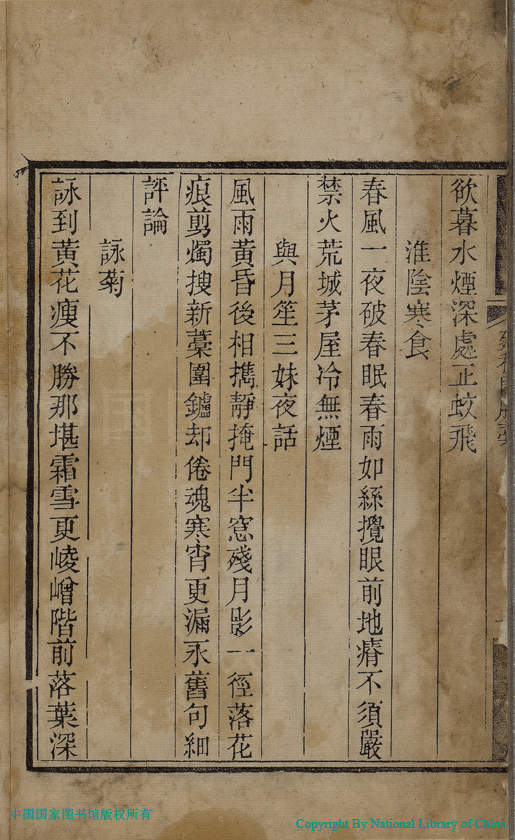 欲暮水煙深處正蚊飛
淮陰寒食
春風一夜破春眠春雨如絲攪眼前地瘠不須嚴
禁火荒城茅屋冷無煙
與月笙三妹夜話
風雨黃昏後相攜靜掩門半窓殘月影一徑落花
痕剪燭搜新藁圍鑪却倦魂寒宵更漏永舊句細
評論
詠菊
詠到黃花瘦不勝那堪霜雪更崚嶒階前落葉深
中国国家图书馆版权所有
Copyright By National Library of China